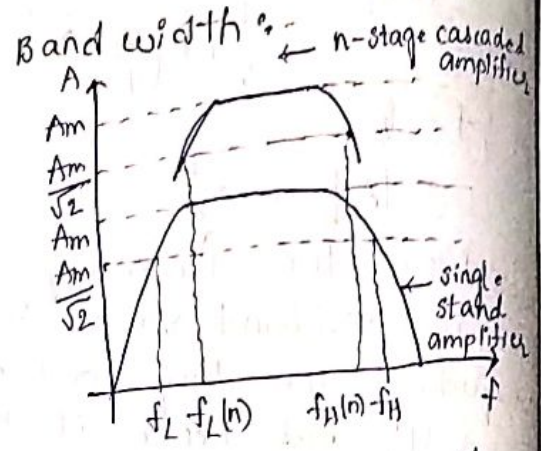 Band width :
← n-stage cascaded
amplifier
A
Am
Am
√2
Am
Am
√2
← single
stand
amplifier
f
fL fL(n) fH(n) fH